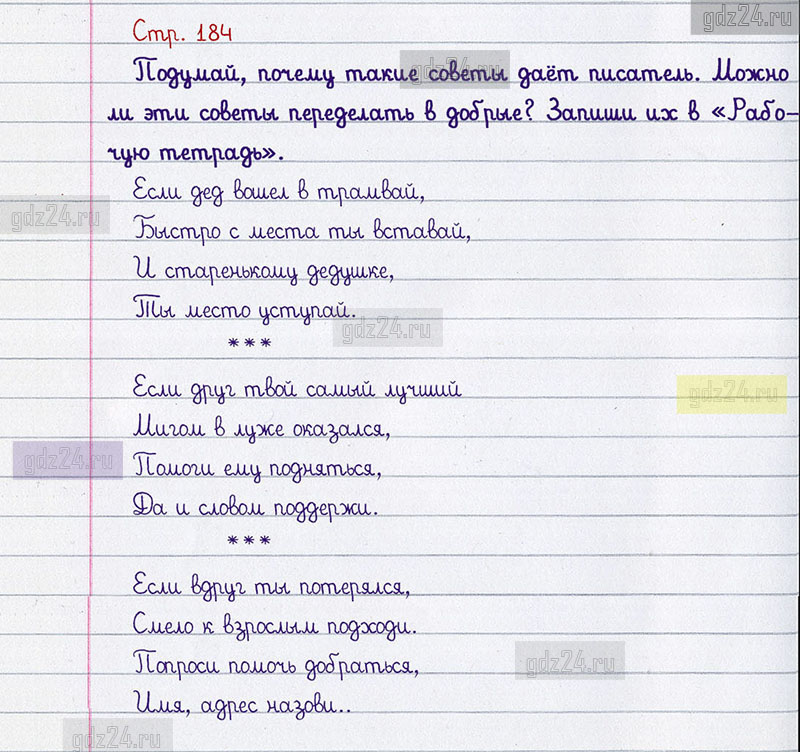 gdz24.ru
Стр. 184
gdz24.ru
Подумай, почему такие советы даёт писатель. Можно
ли эти советы переделать в добрые? Запиши их в «Рабо-
чую тетрадь».
Если дед вошел в трамвай,
gdz24.ru
Быстро с места ты вставай,
И старенькому дедушке,
Ты место уступай.
gdz24.ru
***
Если друг твой самый лучший
gdz24.ru
Мигом в луже оказался,
gdz24.ru
Помоги ему подняться,
Да и словом поддержи.
***
Если вдруг ты потерялся,
Смело к взрослым подходи.
gdz24.ru
Попроси помочь добраться,
Имя, адрес назови..
gdz24.ru